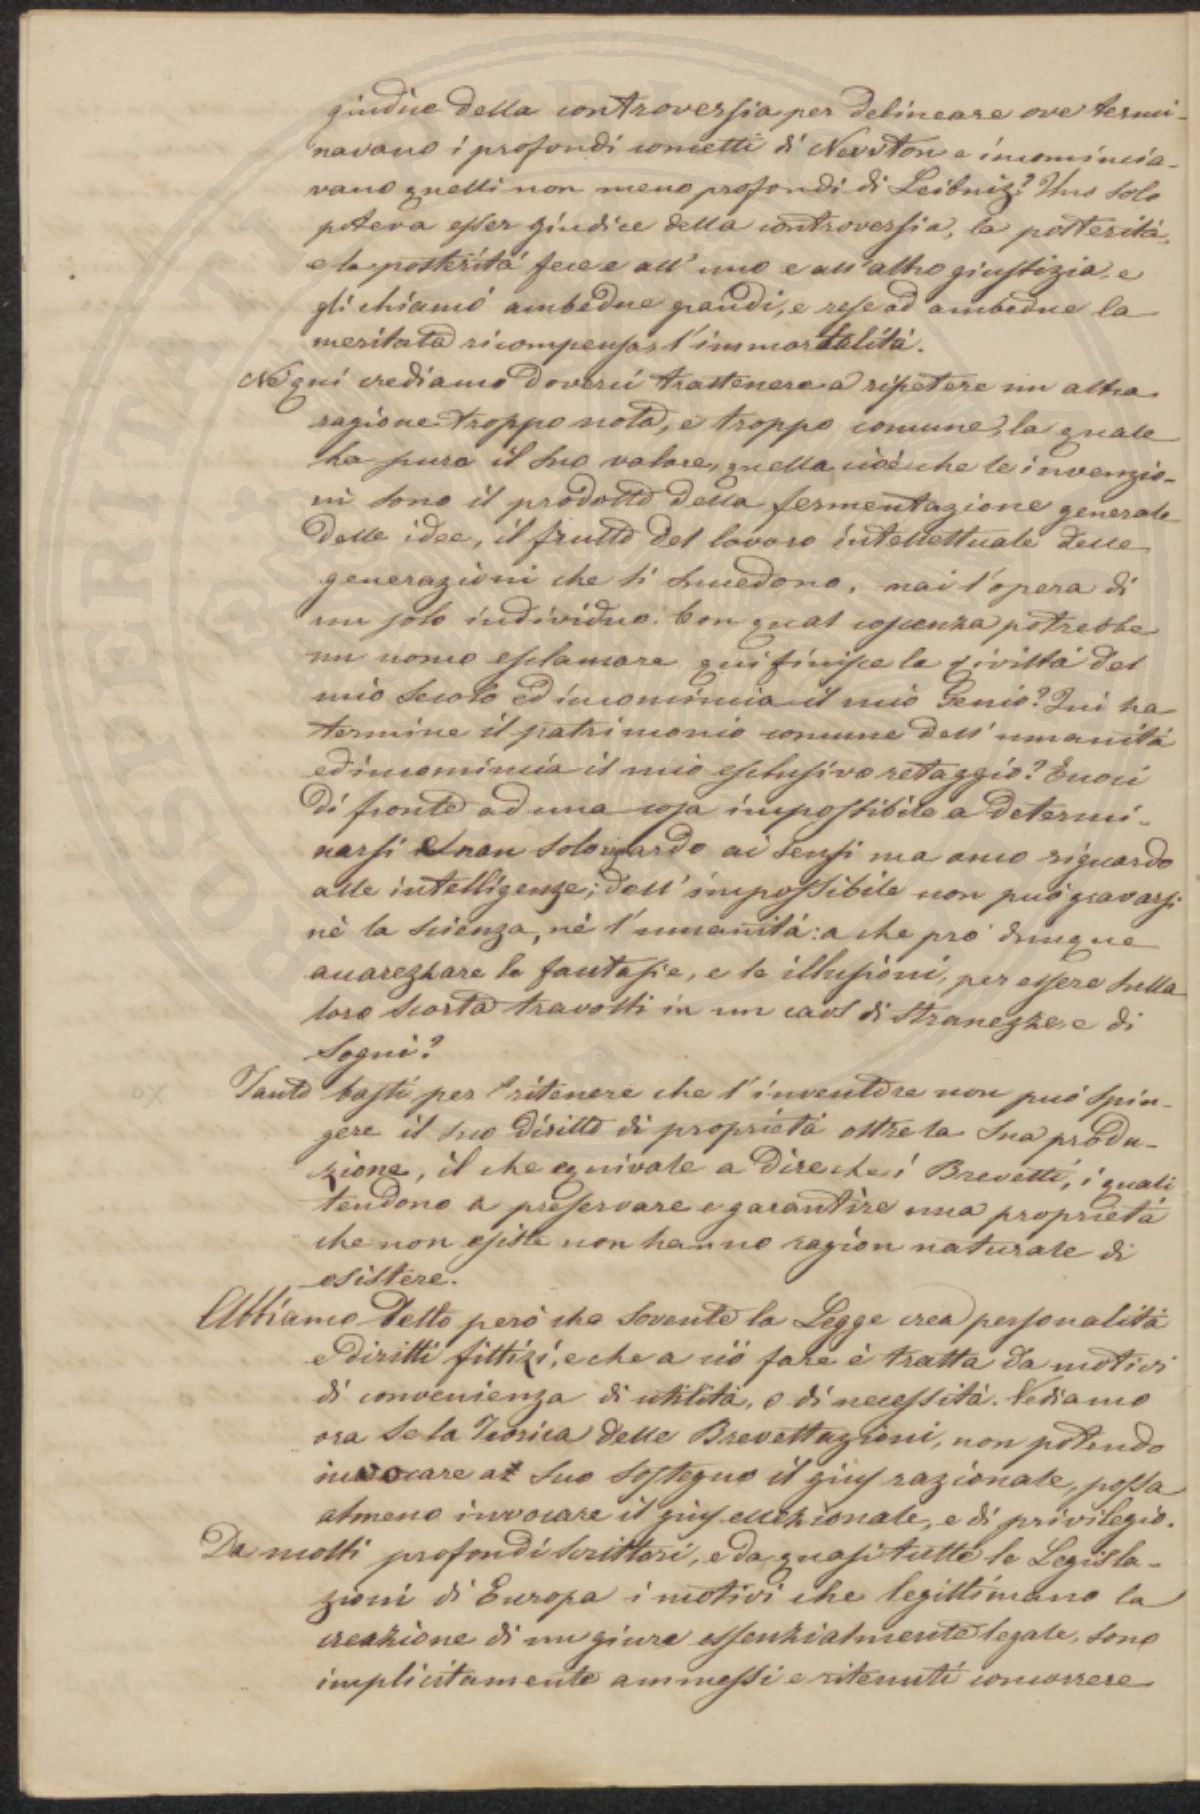 giudice della controversia per delineare ove termi-
navano i profondi concetti di Nevvton e incomincia-
vano quelli non meno profondi di Leibniz? Uno solo
poteva esser giudice della controversia, la posterità,
e la posterità fece e all'uno e all'altro giustizia, e
gli chiamò ambedue grandi, e rese ad ambedue la
meritata ricompensa, l'immortalità.
Nè qui crediamo doverci trattenere a ripetere un altra
ragione troppo nota, e troppo comune, la quale
ha pure il suo valore, quella cioè che le invenzio-
ni sono il prodotto della fermentazione generale
delle idee, il frutto del lavoro intellettuale delle
generazioni che si succedono, mai l'opera di
un solo individuo. Con qual coscenza potrebbe
un uomo esclamare qui finisce la civiltà del
mio secolo ed incomincia il mio Genio? Qui ha
termine il patrimonio comune dell'umanità
ed incomincia il mio esclusivo retaggio? Eccoci
di fronte ad una cosa impossibile a determi-
narsi e non solo riguardo ai sensi ma anco riguardo
alle intelligenze; dall'impossibile non può gravarsi
nè la scienza, nè l'umanità: a che pro dunque
accarezzare le fantasie, e le illusioni, per essere sulla
loro scorta travolti in un caos di stranezze e di
sogni?
Tanto basti per ritenere che l'inventore non può spin-
gere il suo diritto di proprietà oltre la sua produ-
zione, il che equivale a dire che i Brevetti, i quali
tendono a preservare e garantire una proprietà
che non esiste non hanno ragion naturale di
esistere.
Abbiamo detto però che sovente la Legge crea personalità
e diritti fittizi, e che a ciò fare è tratta da motivi
di convenienza di utilità, o di necessità. Vediamo
ora se la Teorica delle Brevettazioni, non potendo
invocare al suo sostegno il gius razionale, possa
almeno invocare il gius eccezionale, e di privilegio.
Da molti profondi scrittori, e da quasi tutte le Legisla-
zioni di Europa i motivi che legittimano la
creazione di un giure essenzialmente legale, sono
implicitamente ammessi e ritenuti concorrere
PROSPERITATI PUBLICAE